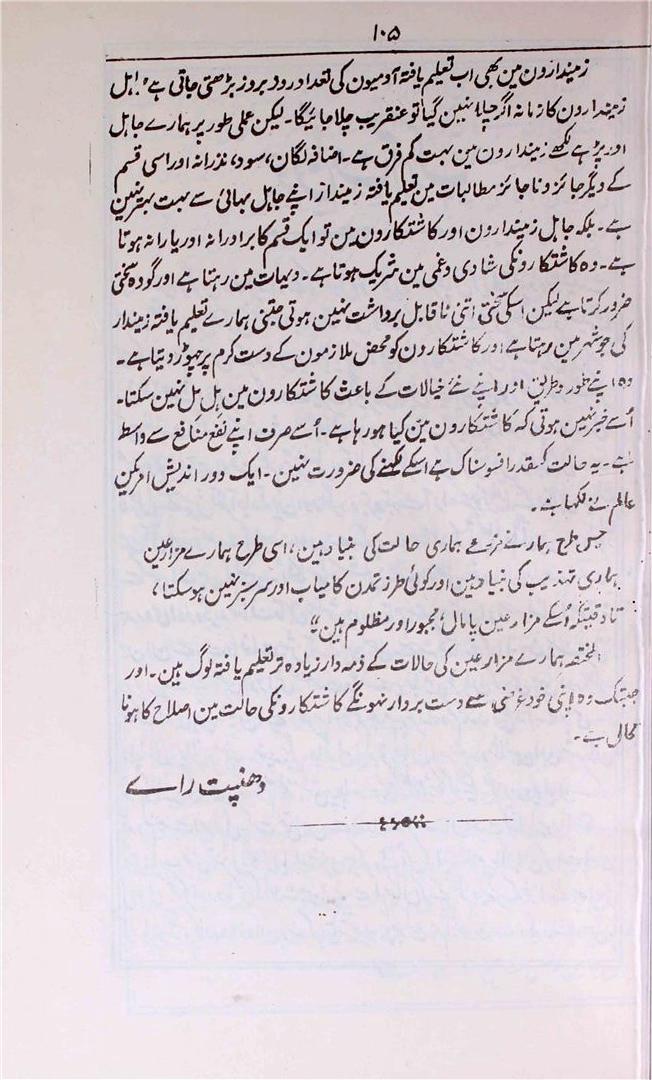 ۱۰۵
زمیندارون مین بھی اب تعلیم یافتہ آدمیون کی تعداد روز بروز بڑھتی جاتی ہے، جاہل
زمیندارون کا زمانہ اگر چلا نہین گیا تو عنقریب چلا جائیگا۔ لیکن عملی طور پر ہمارے جاہل
اور پڑہے لکھے زمیندارون مین بہت کم فرق ہے۔ اضافہ لگان، سود، نذرانہ اور اسی قسم
کے دیگر جائز و ناجائز مطالبات مین تعلیم یافتہ زمیندار اپنے جاہل بہائی سے بہت بہتر نہین
ہے۔ بلکہ جاہل زمیندارون اور کاشتکارون مین تو ایک قسم کا برادرانہ اور یارانہ ہوتا
ہے۔ وہ کاشتکارونکی شادی و غمی مین شریک ہوتا ہے۔ دیہات مین رہتا ہے اور گو وہ سختی
ضرور کرتا ہے لیکن اسکی سختی اتنی ناقابل برداشت نہین ہوتی جتنی ہمارے تعلیم یافتہ زمیندار
کی جو شہر مین رہتا ہے اور کاشتکارون کو محض ملازمون کے دست کرم پر چہوڑ دیتا ہے۔
وہ اپنے طور و طریق اور اپنے نئے خیالات کے باعث کاشتکارون مین ہل مل نہین سکتا۔
اُسے خبر نہین ہوتی کہ کاشتکارون مین کیا ہو رہا ہے۔ اُسے صرف اپنے نفع منافع سے واسطہ
ہے۔ یہ حالت کسقدر افسوسناک ہے اسکے لکھنے کی ضرورت نہین۔ ایک دور اندیش امریکن
عالم نے لکہا ہے۔
جس طرح ہمارے مزرعے ہماری حالت کی بنیاد ہین، اسی طرح ہمارے مزارعین
ہماری تہذیب کی بنیاد ہین اور کوئی طرز تمدن کامیاب اور سرسبز نہین ہوسکتا،
تاوقتیکہ اُسکے مزارعین پامال، مجبور اور مظلوم ہین“
المختصر ہمارے مزارعین کی حالات کے ذمہ دار زیادہ تر تعلیم یافتہ لوگ ہین۔ اور
جبتک وہ اپنی خود غرضی سے دست بردار نہونگے کاشتکارونکی حالت مین اصلاح کا ہونا
محال ہے۔
دھنپت راے